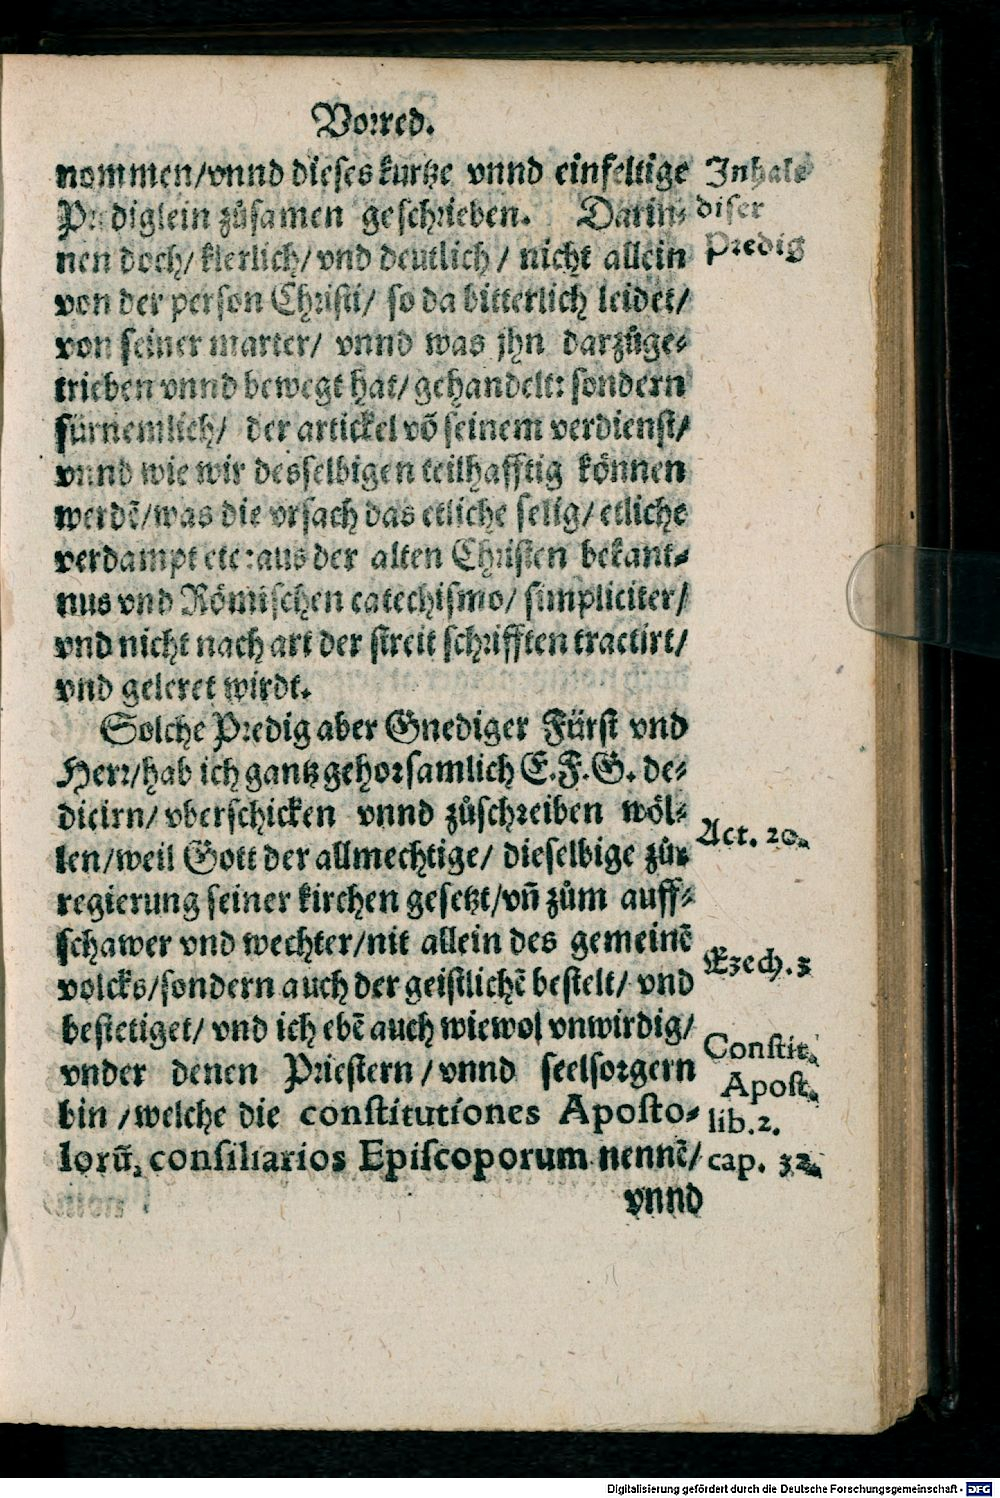 Vorred.
nommen/vnnd dieses kurtze vnnd einfeltige
Prediglein zůsamen geschrieben. Darin-
nen doch/ klerlich/ vnd deutlich/ nicht allein
von der person Christi/ so da bitterlich leidet/
von seiner marter/ vnnd was jhn darzůge-
trieben vnnd bewegt hat/ gehandelt: sondern
fürnemlich/ der artickel võ seinem verdienst/
vnnd wie wir desselbigen teilhafftig können
werdẽ/was die vrsach das etliche selig/ etliche
verdampt etc: aus der alten Christen bekant-
nus vnd Römischen catechismo/ simpliciter/
vnd nicht nach art der streit schrifften tractirt/
vnd geleret wirdt.
Solche Predig aber Gnediger Fürst vnd
Herr/hab ich gantz gehorsamlich E.F.G. de-
dicirn/ vberschicken vnnd zůschreiben wöl-
len/weil Gott der allmechtige/ dieselbige zůr
regierung seiner kirchen gesetzt/vñ zům auff-
schawer vnd wechter/nit allein des gemeinẽ
volcks/sondern auch der geistlichẽ bestelt/ vnd
bestetiget/ vnd ich ebẽ auch wiewol vnwirdig/
vnder denen Priestern/vnnd seelsorgern
bin /welche die constitutiones Aposto-
lorũ, consiliarios Episcoporum nennẽ/
vnnd
Inhalt
diser
Predig
Act. 20.
Ezech. 3
Constit.
Apost.
lib. 2.
cap. 32.
Digitalisierung gefördert durch die Deutsche Forschungsgemeinschaft - DFG